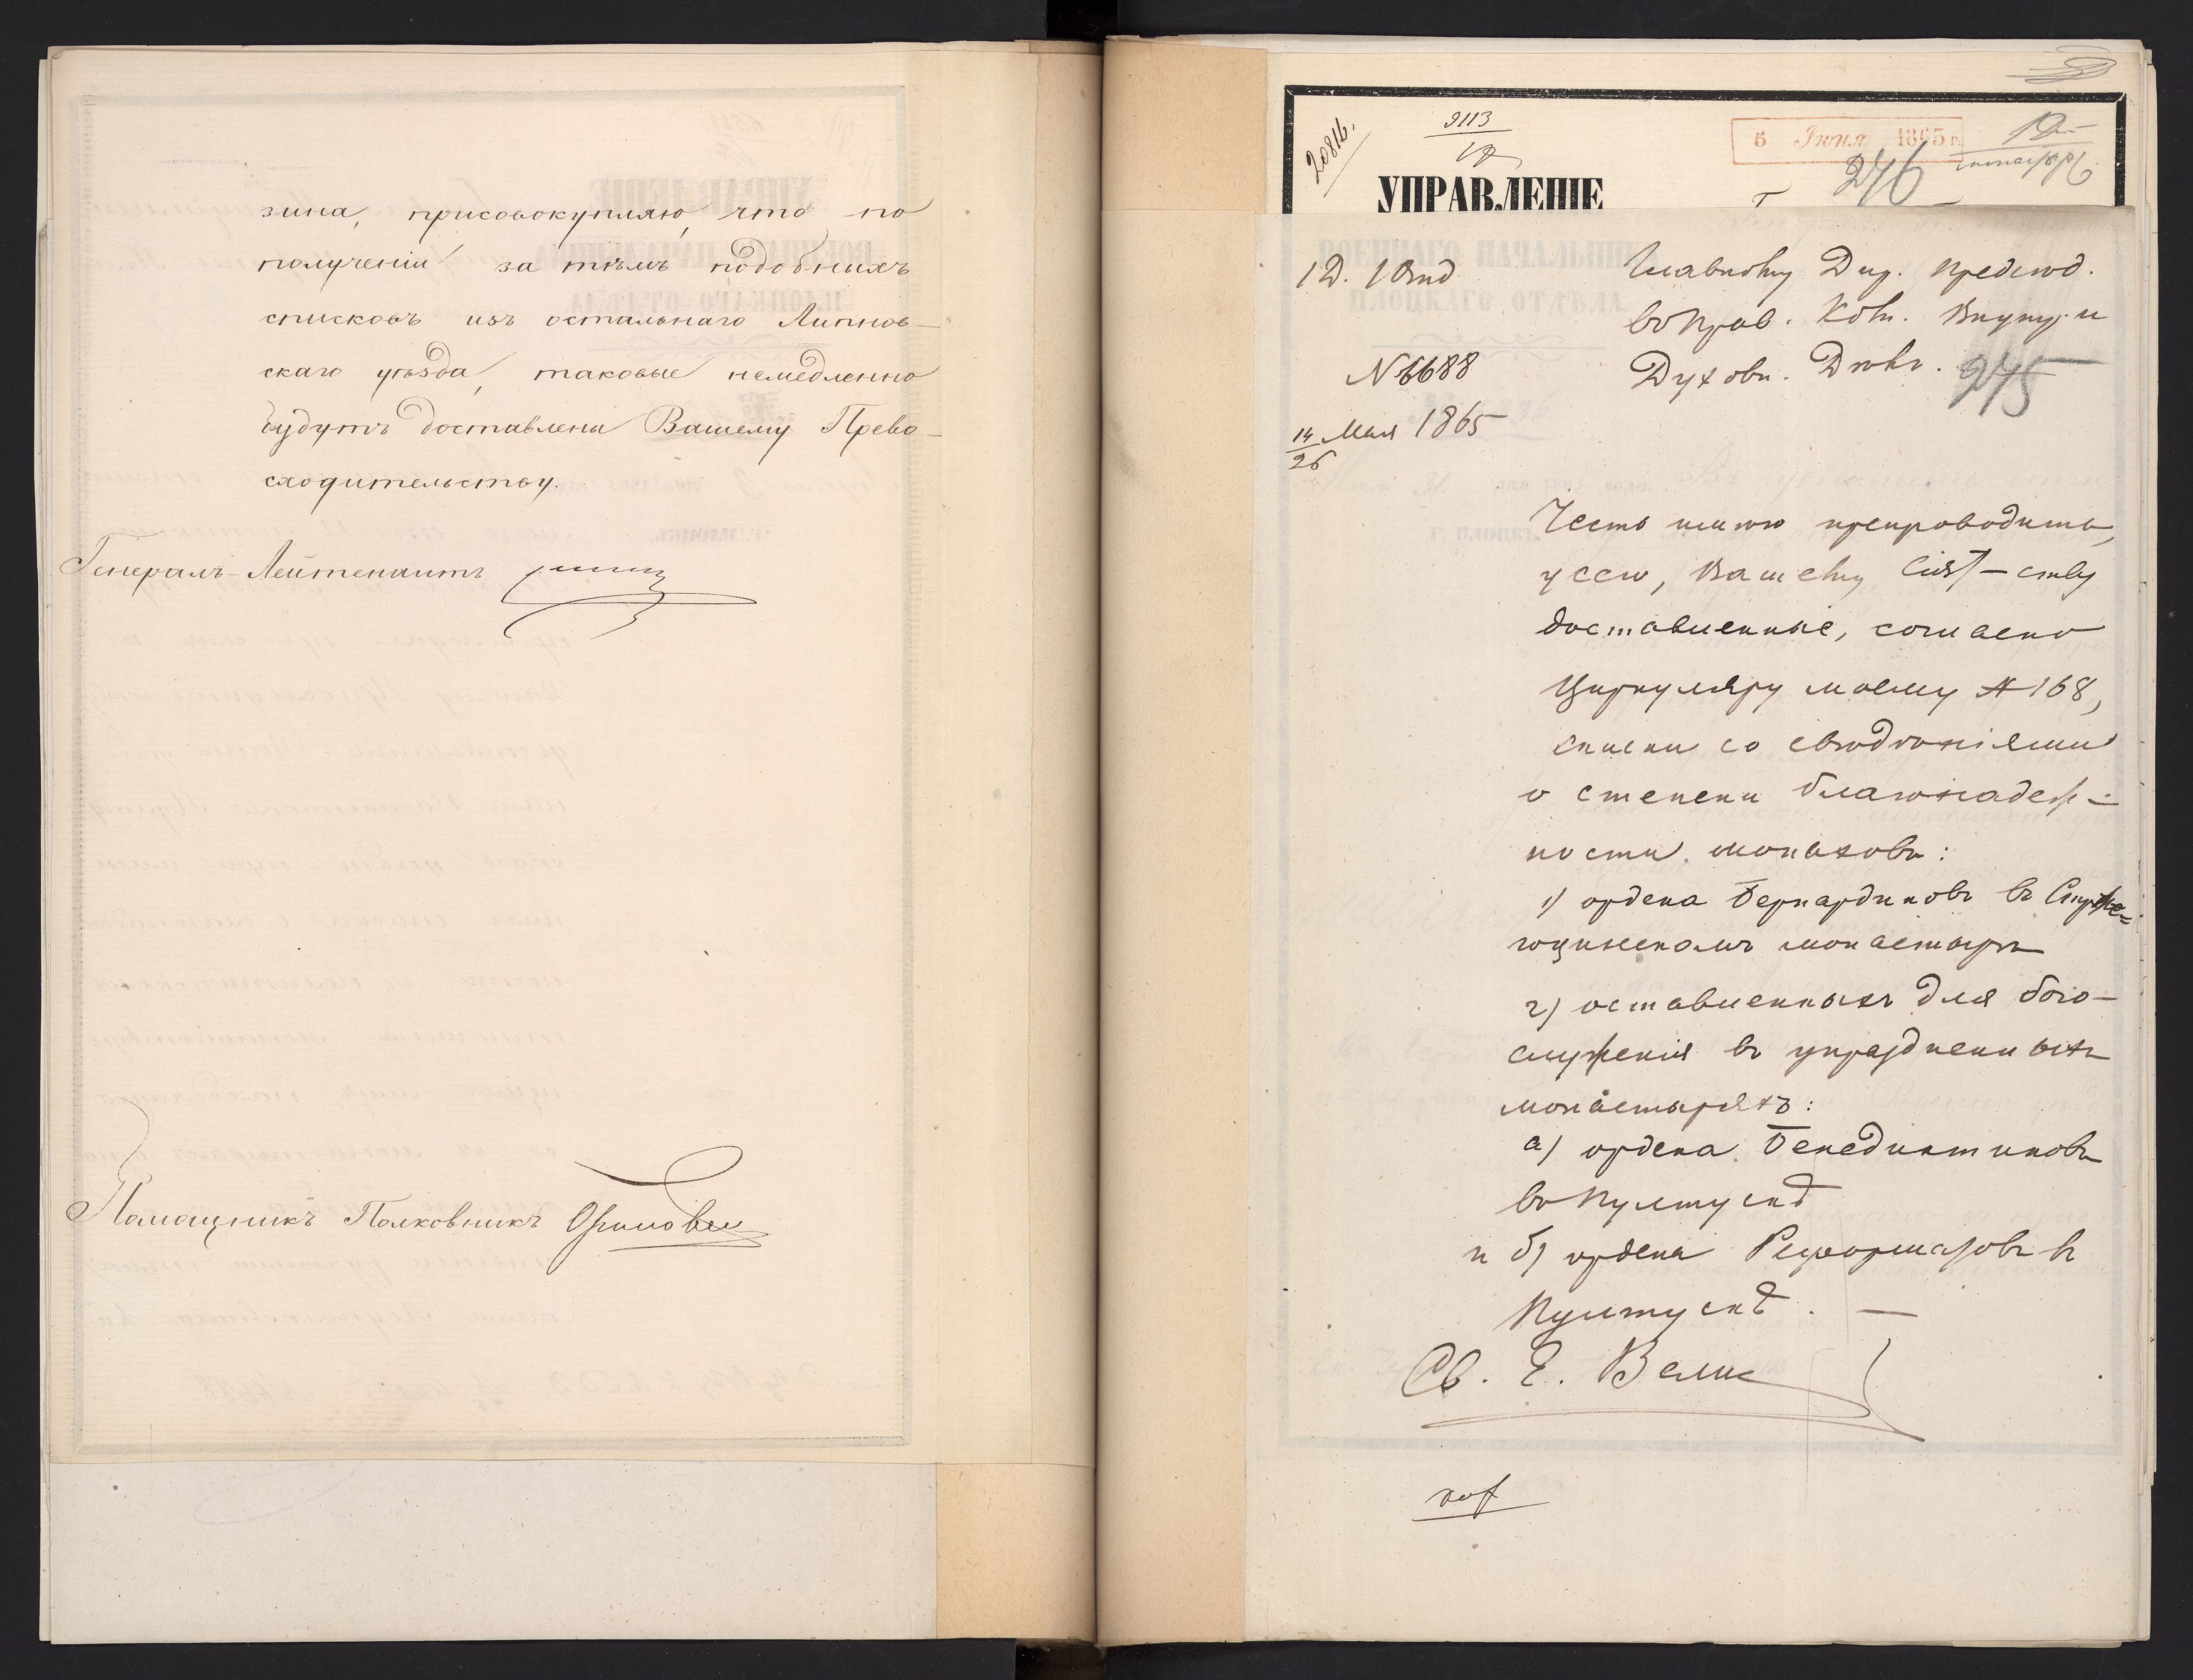 зина, присовокупляю, что по
полученіи за тѣмъ подобныхъ
списковъ изъ остальнаго Липнов-
скаго уѣзда, таковые немедленно
будутъ доставлены Вашему Прево-
сходительству.
Генералъ-Лейтенантъ
Помощникъ Полковникъ
20816.
9113
5 Іюня 1865 г.
276
УПРАВЛЕНІЕ
1 Д. 1 Отд
N 6688
14/26 Мая 1865
Главному Дир. предсѣд.
въ Прав. Ком. Внутр. и
Духовн. Дѣлъ.
275
Честь имѣю препроводить,
у сего, Вашему Сіят-ству
доставленные, согласно
Циркуляру моему № 168,
списки со свѣдѣніями
о степени благонадеж-
ности монаховъ:
1) ордена Бернардиновъ въ
монастырѣ
2) оставленныхъ для бого-
служенія въ упраздненныхъ
монастыряхъ:
а) ордена Бенедиктиновъ
въ Пултускѣ
и б) ордена Реформатовъ въ
Пултускѣ. —
Св. Е. Велич